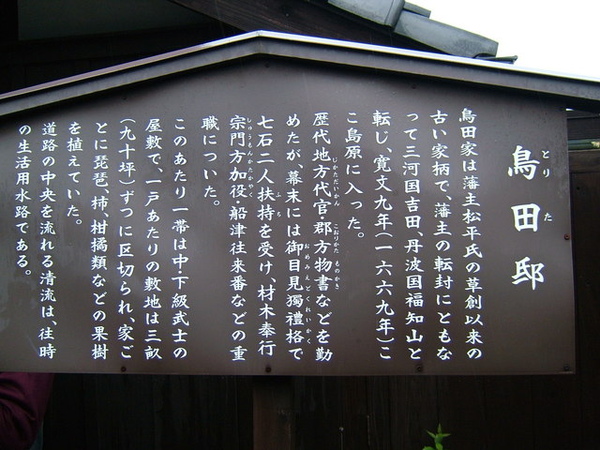 鳥田邸
とりた
鳥田家は藩主松平氏の草創以来の
古い家柄で、藩主の転封にともな
って三河国吉田、丹波国福知山と
転じ、寛文九年(一六六九年)こ
こ島原に入った。
歴代地方代官、郡方物書などを勤
じかただいかん こおりかたものかき
めたが、幕末には御目見獨禮格で
おめみえどくれいかく
七石二人扶持を受け、材木奉行
ふち
宗門方加役・船津往来番などの重
しゅうもんかたかやく
職についた。
このあたり一帯は中・下級武士の
屋敷で、一戸あたりの敷地は三畝
(九十坪)ずつに区切られ、家ご
とに琵琶、柿、柑橘類などの果樹
を植えていた。
道路の中央を流れる清流は、往時
の生活用水路である。